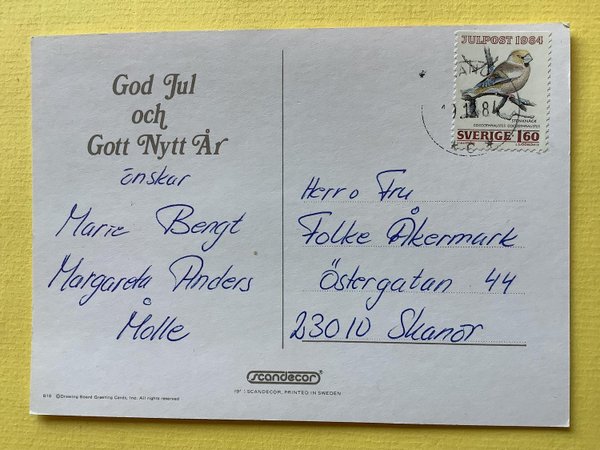 God Jul
och
Gott Nytt År
önskar
Marie Bengt
Margareta Anders
å
Molle
JULPOST 1984
STENKNÄCK
COCCOTHRAUSTES COCCOTHRAUSTES
SVERIGE 1.60
* C *
Herr o Fru
Folke Åkermark
Östergatan 44
23010 Skanör
scandecor®
SCANDECOR, PRINTED IN SWEDEN
©Drawing Board Greeting Cards, Inc. All rights reserved